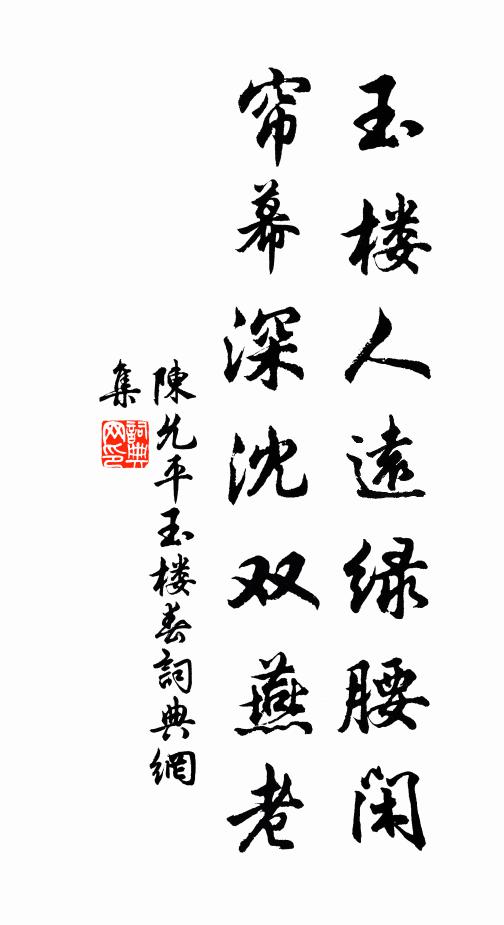 玉楼人遠緑腰闲
帘幕深沈双燕老
陳允平玉楼春詞典網
集
詞典
网印